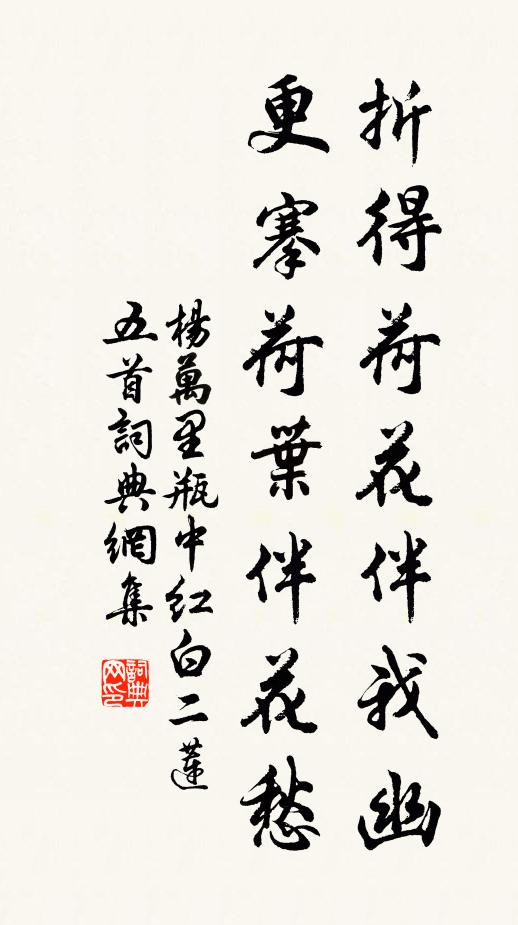 折得荷花伴我幽
更搴荷葉伴花愁
楊萬里瓶中紅白二蓮
五首詞典網集
詞典网印